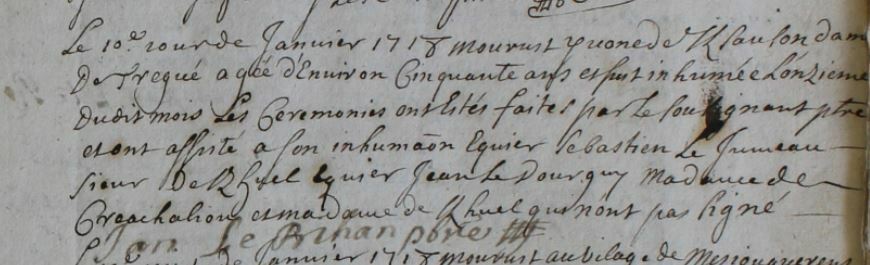 Le 10e iour de Janvier 1718 mourust yvone de Klauson dam
De Trequé agée d'Environ Cinquante ans et fust inhumée L'onzieme
Dudit mois Les Ceremonies ont Estés faites par Le Soussignant ptre
et ont assisté a son inhumaõn Equier Sebastien Le Jumeau
sieur De Khuel Equier Jean Le Dourguy Madame de
Creachalion et madame de Khuel qui n'ont pas signé
Jan Le ptre
de Janvier 1718 mourust au vilage de